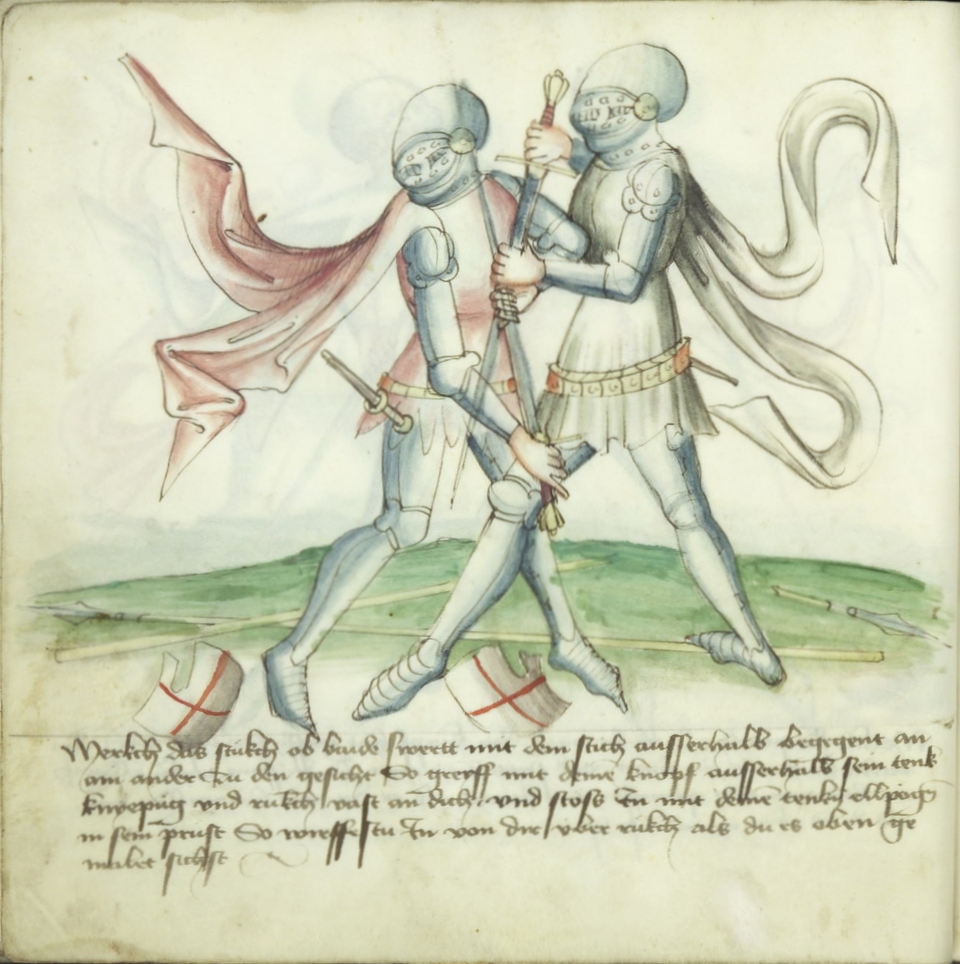 Merckh das stuckh ob baide swertt mit dem stich ausserhalb begegent an
am ander zu den gesicht So greyff mit deinē knopf ausserhalb sein tenk
knyepüg vnd rückh vast an dich vnd stoss In mit deinē tenkn ellpogē
in sein prust So wirffestu In von dir vber rückh als du es oben ge
malet sichst